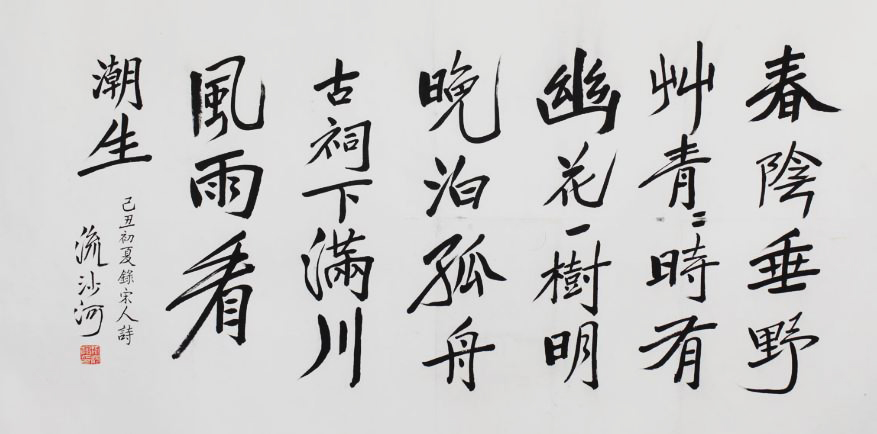 春陰垂野
艸青〻時有
幽花一樹明
晚泊孤舟
古祠下滿川
風雨看
潮生
己丑初夏錄宋人詩
流沙河